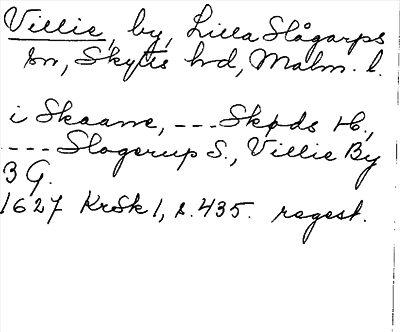 Villie, by, Lilla Slågarps
sn, Skytts hd, Malm. l.
i Skaane, --- Skøds H.,
---- Slogerup S., Villie By
3 G.
1627 KrSk 1, s. 435. regest.